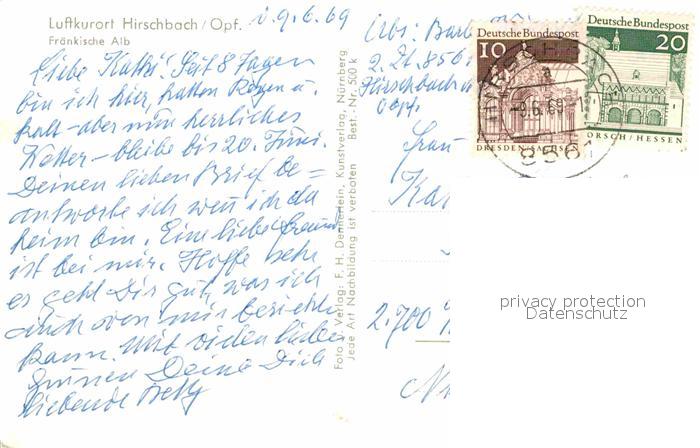 Luftkurort Hirschbach/Opf.
Fränkische Alb
d. 9.6.69
Liebe Kathi! Seit 8 Tagen
bin ich hier, hatten Regen u.
kalt - aber nun herrliches
Wetter - bleibe bis 20. Juni.
Deinen lieben Brief be=
antworte ich wenn ich da
heim bin. Eine liebe Freundin
ist bei mir. Hoffe sehr
es geht Dir gut, was ich
auch von mir berichten
kann. Mit vielen lieben
Grüssen Deine Dich
liebende Betty
Foto u. Verlag: F. H. Dennerlein, Kunstverlag, Nürnberg
Jede Art Nachbildung ist verboten Best.-Nr. 500 k
Abs: Barb
z. Zt. 8561
Hirschbach
Opf.
Frau
Ka
2.700
Deutsche Bundespost
10
DRESDEN/SACHSEN
Deutsche Bundespost
20
LORSCH/HESSEN
HIRSCHBACH
a
-9.6.69
8561
privacy protection
Datenschutz